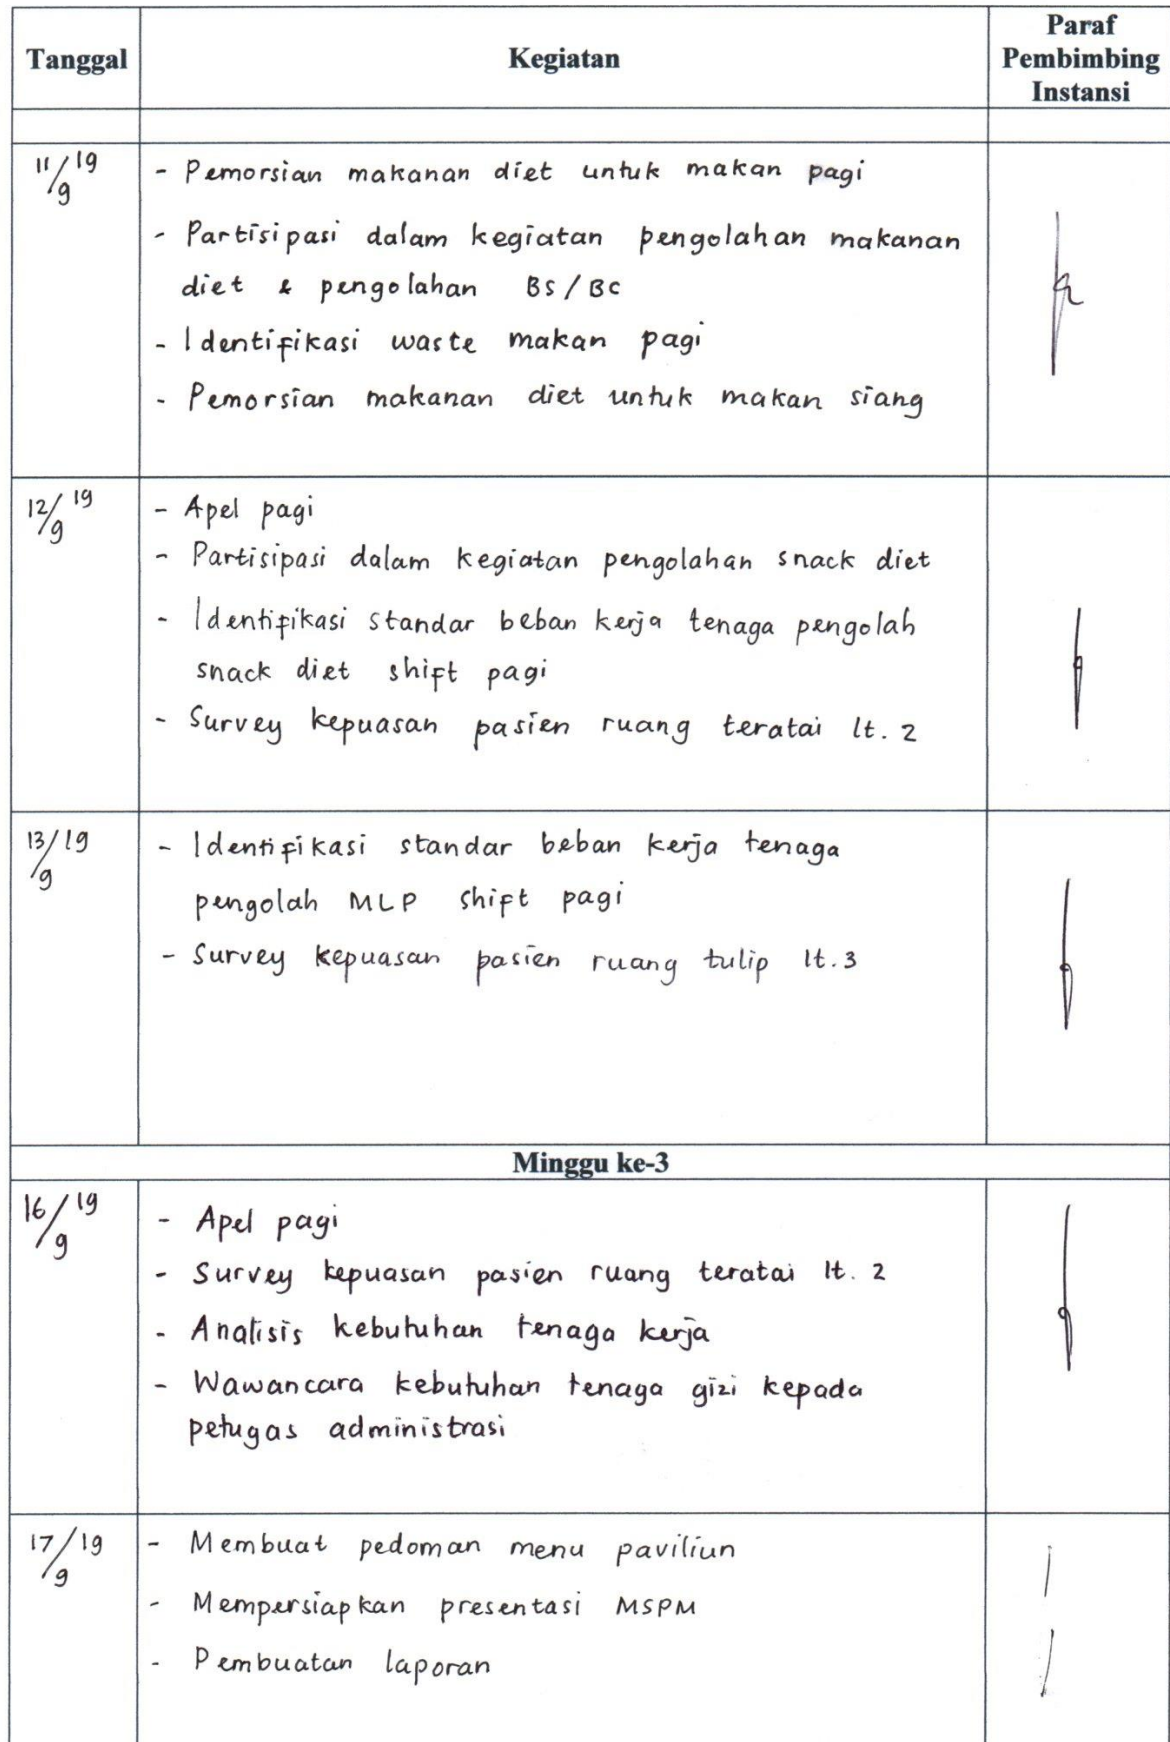 Tanggal Kegiatan Paraf
Pembimbing
Instansi
11/9 19
- Pemorsian makanan diet untuk makan pagi
- Partisipasi dalam kegiatan pengolahan makanan
diet & pengolahan BS/BC
- Identifikasi waste makan pagi
- Pemorsian makanan diet untuk makan siang
12/9 19
- Apel pagi
- Partisipasi dalam kegiatan pengolahan snack diet
- Identifikasi standar beban kerja tenaga pengolah
snack diet shift pagi
- Survey kepuasan pasien ruang teratai lt. 2
13/9 19
- Identifikasi standar beban kerja tenaga
pengolah MLP shift pagi
- Survey kepuasan pasien ruang tulip lt. 3
Minggu ke-3
16/9 19
- Apel pagi
- Survey kepuasan pasien ruang teratai lt. 2
- Analisis kebutuhan tenaga kerja
- Wawancara kebutuhan tenaga gizi kepada
petugas administrasi
17/9 19
- Membuat pedoman menu paviliun
- Mempersiapkan presentasi MSPM
- Pembuatan laporan